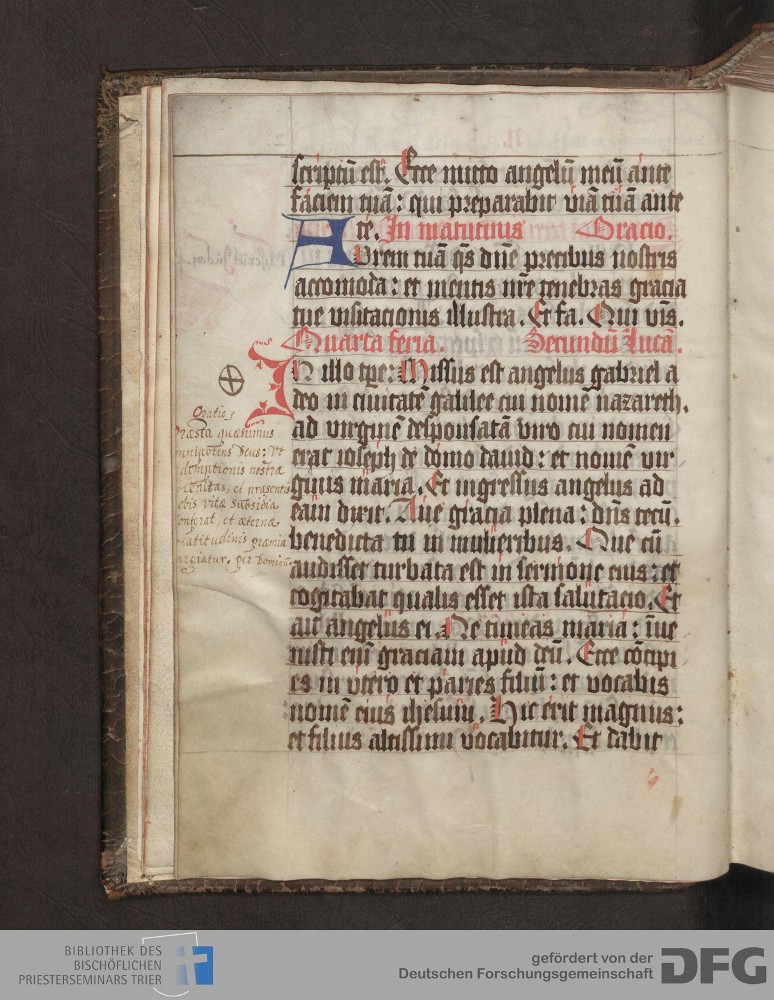 scriptū est. Ecce mitto angelū meū ante
faciem tuā: qui preparabit viā tuā ante
te. In matutinis Oracio.
Aurem tuā qs dn̄e precibus nostris
accomoda: et mentis nr̄e tenebras gracia
tue visitacionis illustra. Et fa. Qui viis.
Quarta feria. Secundū Lucā.
In illo tp̄e: Missus est angelus gabriel a
deo in ciuitatē galilee cui nomē nazareth.
ad virginē desponsatā viro cui nomen
erat ioseph de domo dauid: et nomē vir
ginis maria. Et ingressus angelus ad
eam dixit. Aue gracia plena: dn̄s tecū.
benedicta tu in mulieribus. Que cū
audisset turbata est in sermone eius: et
cogitabat qualis esset ista salutacio. Et
ait angelus ei. Ne timeas maria: inue
nisti enī graciam apud deū. Ecce cōcipi
es in vtero et paries filiū: et vocabis
nomē eius ihesum. Hic erit magnus:
et filius altissimi vocabitur. Et dabit
Oratio
Præsta quæsumus
mnipotens Deus: Vt
demptionis nostræ
lēnitas, et præsentis
obis vitæ Subsidia
onferat, et æternæ
eatitudinis præmia
argiatur. per Dominū.
BIBLIOTHEK DES
BISCHÖFLICHEN
PRIESTERSEMINARS TRIER
gefördert von der
Deutschen Forschungsgemeinschaft
DFG